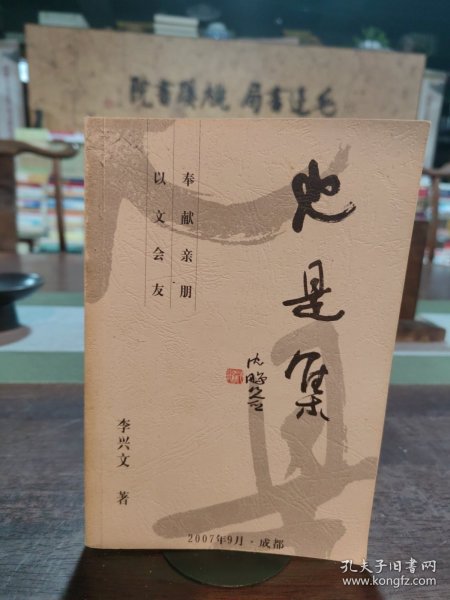 毛邊書局 桃蹊書院
也是集
沈鹏
奉献亲朋
以文会友
李兴文 著
2007年9月·成都
孔夫子旧书网
www.kongfz.com